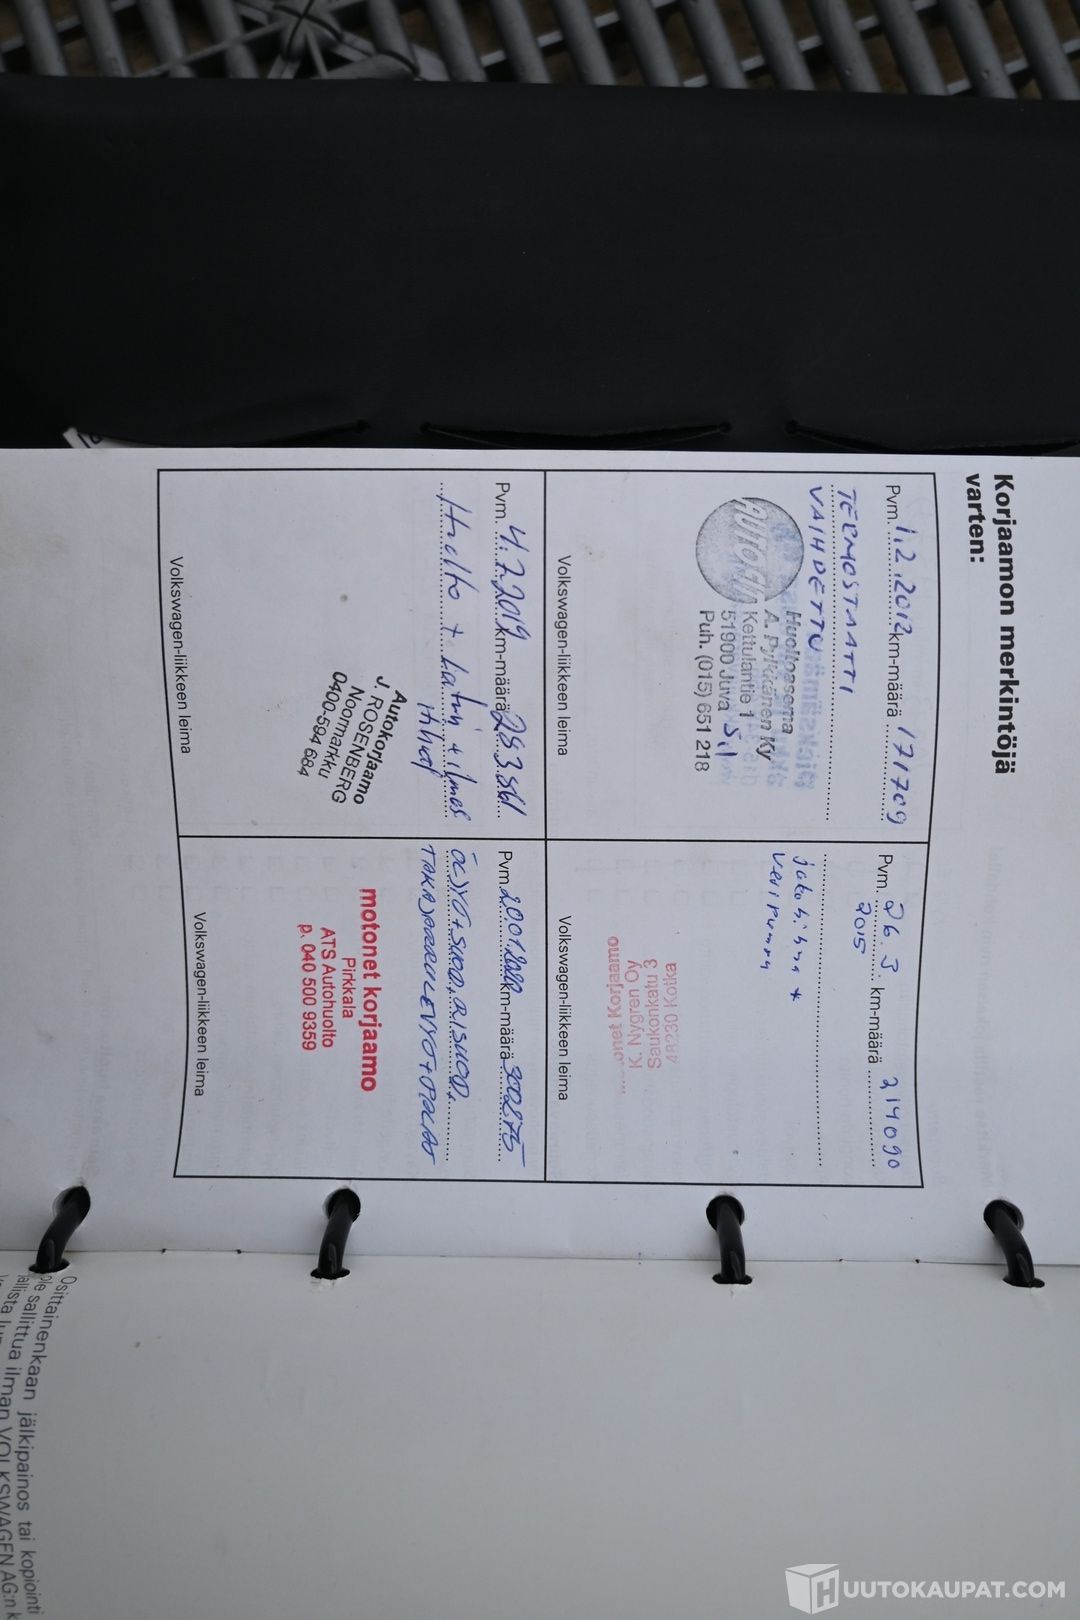 Korjaamon merkintöjä
varten:
Pvm. 1.2.2012 km-määrä 171709
TERMOSTAATTI
VAIHDETTU
Huoltoasema
A. Pylkkänen Ky
Kettulantie 1
51900 Juva
Puh. (015) 651 218
Volkswagen-liikkeen leima
Pvm. 26.3. km-määrä 214090
2015
jakohihna +
vesipumpu
48230 Kotka
K. Nygren Oy
Korjaamo
Volkswagen-liikkeen leima
Pvm. 4.7.2019 km-määrä 283861
Huolto +
Autokorjaamo
J. ROSENBERG
Noormarkku
0400-594 684
Volkswagen-liikkeen leima
Pvm. 20.01.2020 km-määrä 300275
TAKAJARRULEVYT + PALAT
motonet korjaamo
Pirkkala
ATS Autohuolto
p. 040 500 9359
Volkswagen-liikkeen leima
Osittainenkaan jälkipainos tai kopiointi
sallittua ilman VOLKSWAGEN AG:n
HUUTOKAUPAT.COM